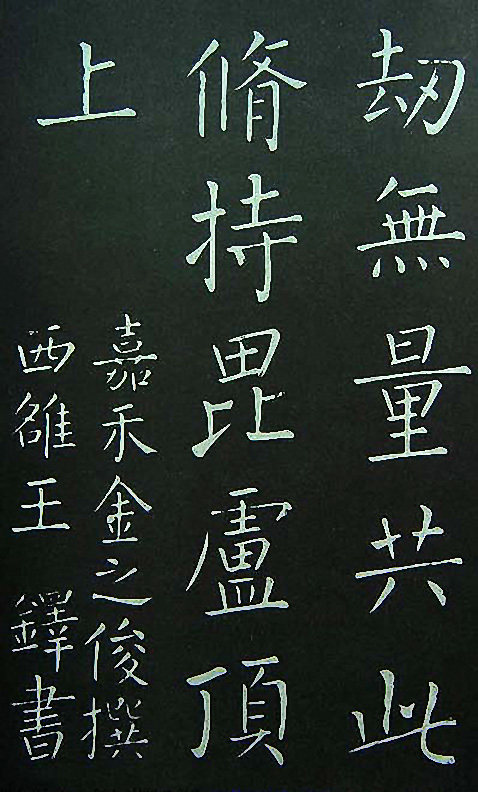 劫無量共此
脩持毘盧頂
上
嘉禾金之俊撰
西雒王鐸書